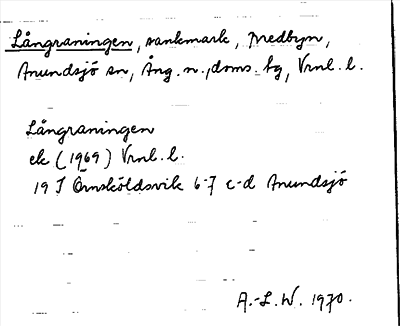 Långraningen, sankmark, Predbyn,
Anundsjö sn, Ång. n., doms. bg, Vrnl. l.
Långraningen
ek (1969) Vrnl. l.
19 J Örnsköldsvik 6-7 c-d Anundsjö
A.-L. W. 1970.